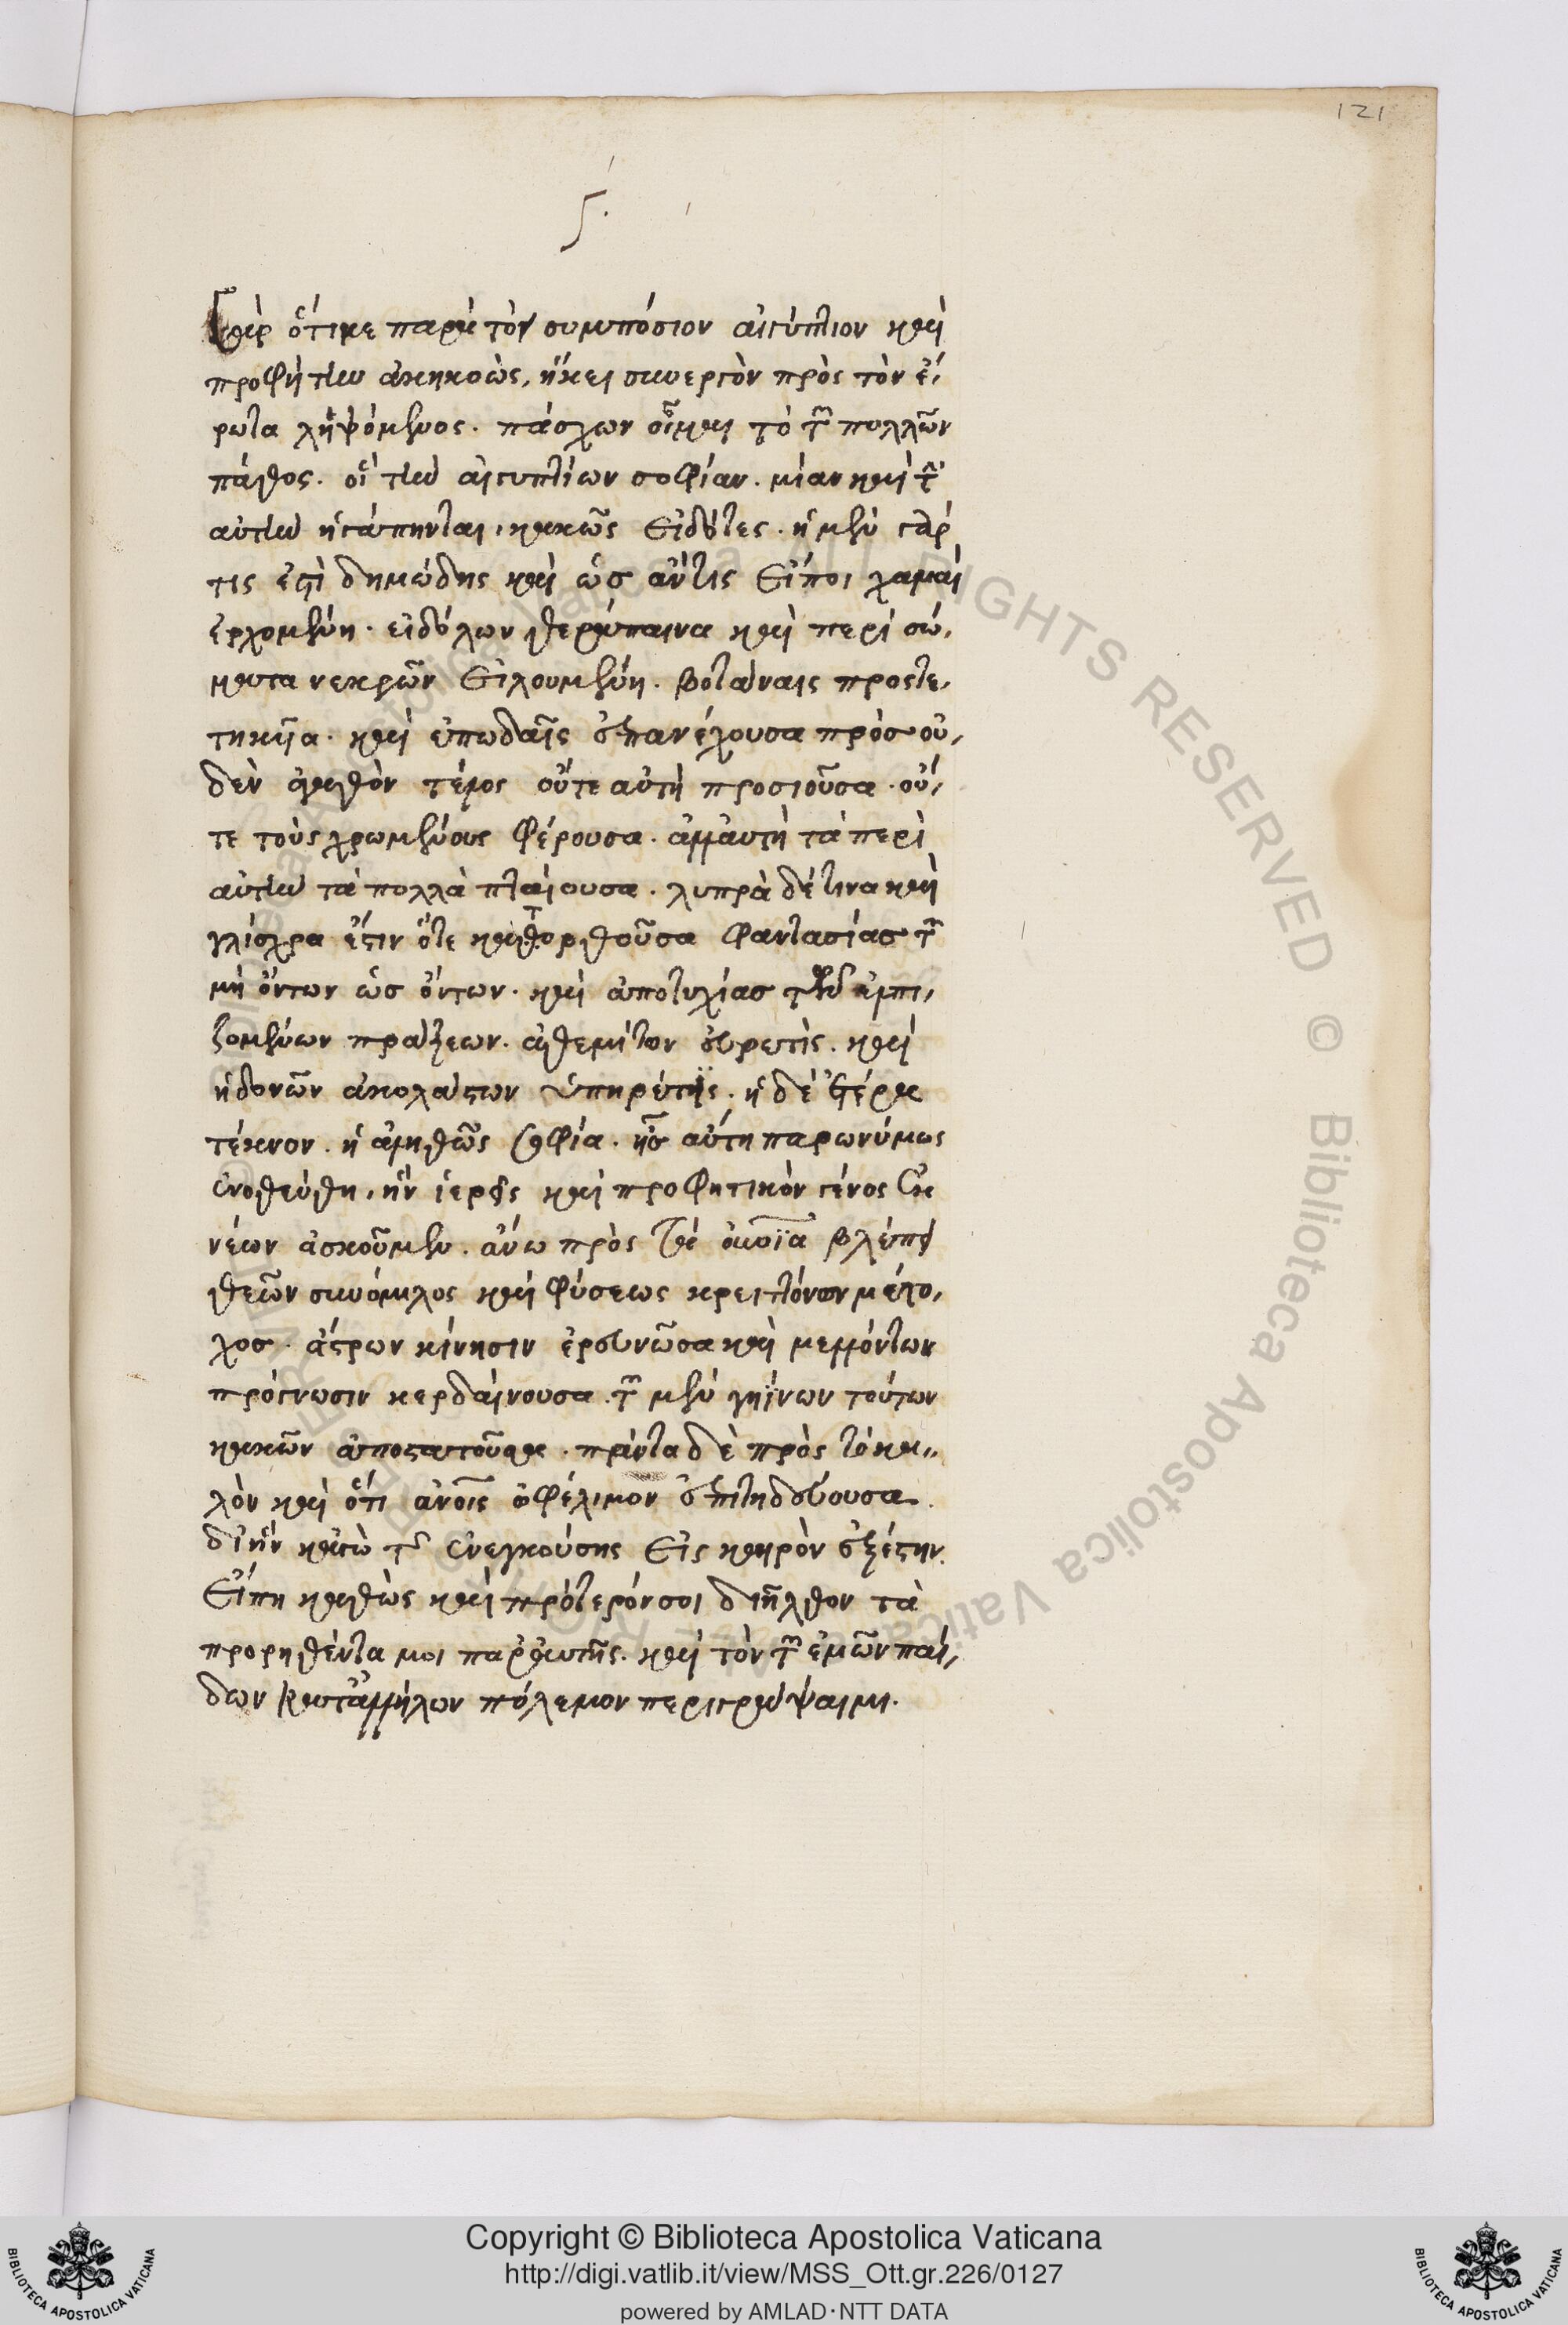 121
ς.
γὰρ ὅτι με παρὰ τὸ συμπόσιον αἰγύπτιον καὶ
προφήτην ἀκηκοὼς, ἥκει συνεργὸν πρὸς τὸν ἔ,
ρωτα ληψόμενος. πάσχων οἶμαι τὸ τῶν πολλῶν
πάθος. οἳ τὴν αἰγυπτίων σοφίαν. μίαν καὶ τὴν
αὐτὴν ἠπάτηνται, κακῶς εἰδότες. ἡ μὲν γάρ
τις ἐστὶ δημώδης καὶ ὡς ἄν τις εἴποι χαμαὶ
ἐρχομένη. εἰδώλων θεράπαινα καὶ περὶ σώ,
ματα νεκρῶν εἰλουμένη. βοτάναις προστε,
τηκυῖα. καὶ ἐπωδαῖς ἐπανέχουσα πρὸς οὐ,
δὲν ἀγαθὸν τέλος οὔτε αὐτὴ προσιοῦσα. οὔ,
τε τοὺς χρωμένους φέρουσα. ἀλλ' αὐτὴ τὰ περὶ
αὐτὴν τὰ πολλὰ πταίουσα. λυπρὰ δέ τινα καὶ
γλίσχρα ἔστιν ὅτε κατορθοῦσα φαντασίας τῶν
μὴ ὄντων ὡς ὄντων. καὶ ἀποτυχίας τῶν ἐλπι,
ζομένων πράξεων. ἀθεμίτων εὑρετὶς. καὶ
ἡδονῶν ἀκολάστων ὑπηρέτις. ἡ δὲ ἑτέρα
τέκνον. ἡ ἀληθῶς σοφία. ἧς αὕτη παρωνύμως
ἐνοθεύθη, ἣν ἱερεῖς καὶ προφητικὸν γένος ἐκ
νέων ἀσκοῦμεν. ἄνω πρὸς τὰ οὐράνια βλέπει
θεῶν συνόμιλος καὶ φύσεως κρειττόνων μέτο,
χος. ἄστρων κίνησιν ἐρευνῶσα καὶ μελλόντων
πρόγνωσιν κερδαίνουσα. τῶν μὲν γηΐνων τούτων
κακῶν ἀποστατοῦσα. πάντα δὲ πρὸς τὸ κα,,
λὸν καὶ ὅτι ἀνοις ὠφέλιμον ἐπιτηδεύουσα.
δι' ἣν κἀγὼ τῆς ἐνεγκούσης εἰς καιρὸν ἐξέστην.
εἴπη καθὼς καὶ πρότερόν σοι διῆλθον τὰ
προρηθέντα μοι παρ' αὐτῆς. καὶ τὸν τῶν ἐμῶν παί,
δων κατ' ἀλλήλων πόλεμον περιγράψαιμι.
RIGHTS RESERVED © Biblioteca Apostolica Vaticana
Copyright © Biblioteca Apostolica Vaticana
http://digi.vatlib.it/view/MSS_Ott.gr.226/0127
powered by AMLAD·NTT DATA
BIBLIOTECA APOSTOLICA VATICANA
BIBLIOTECA APOSTOLICA VATICANA